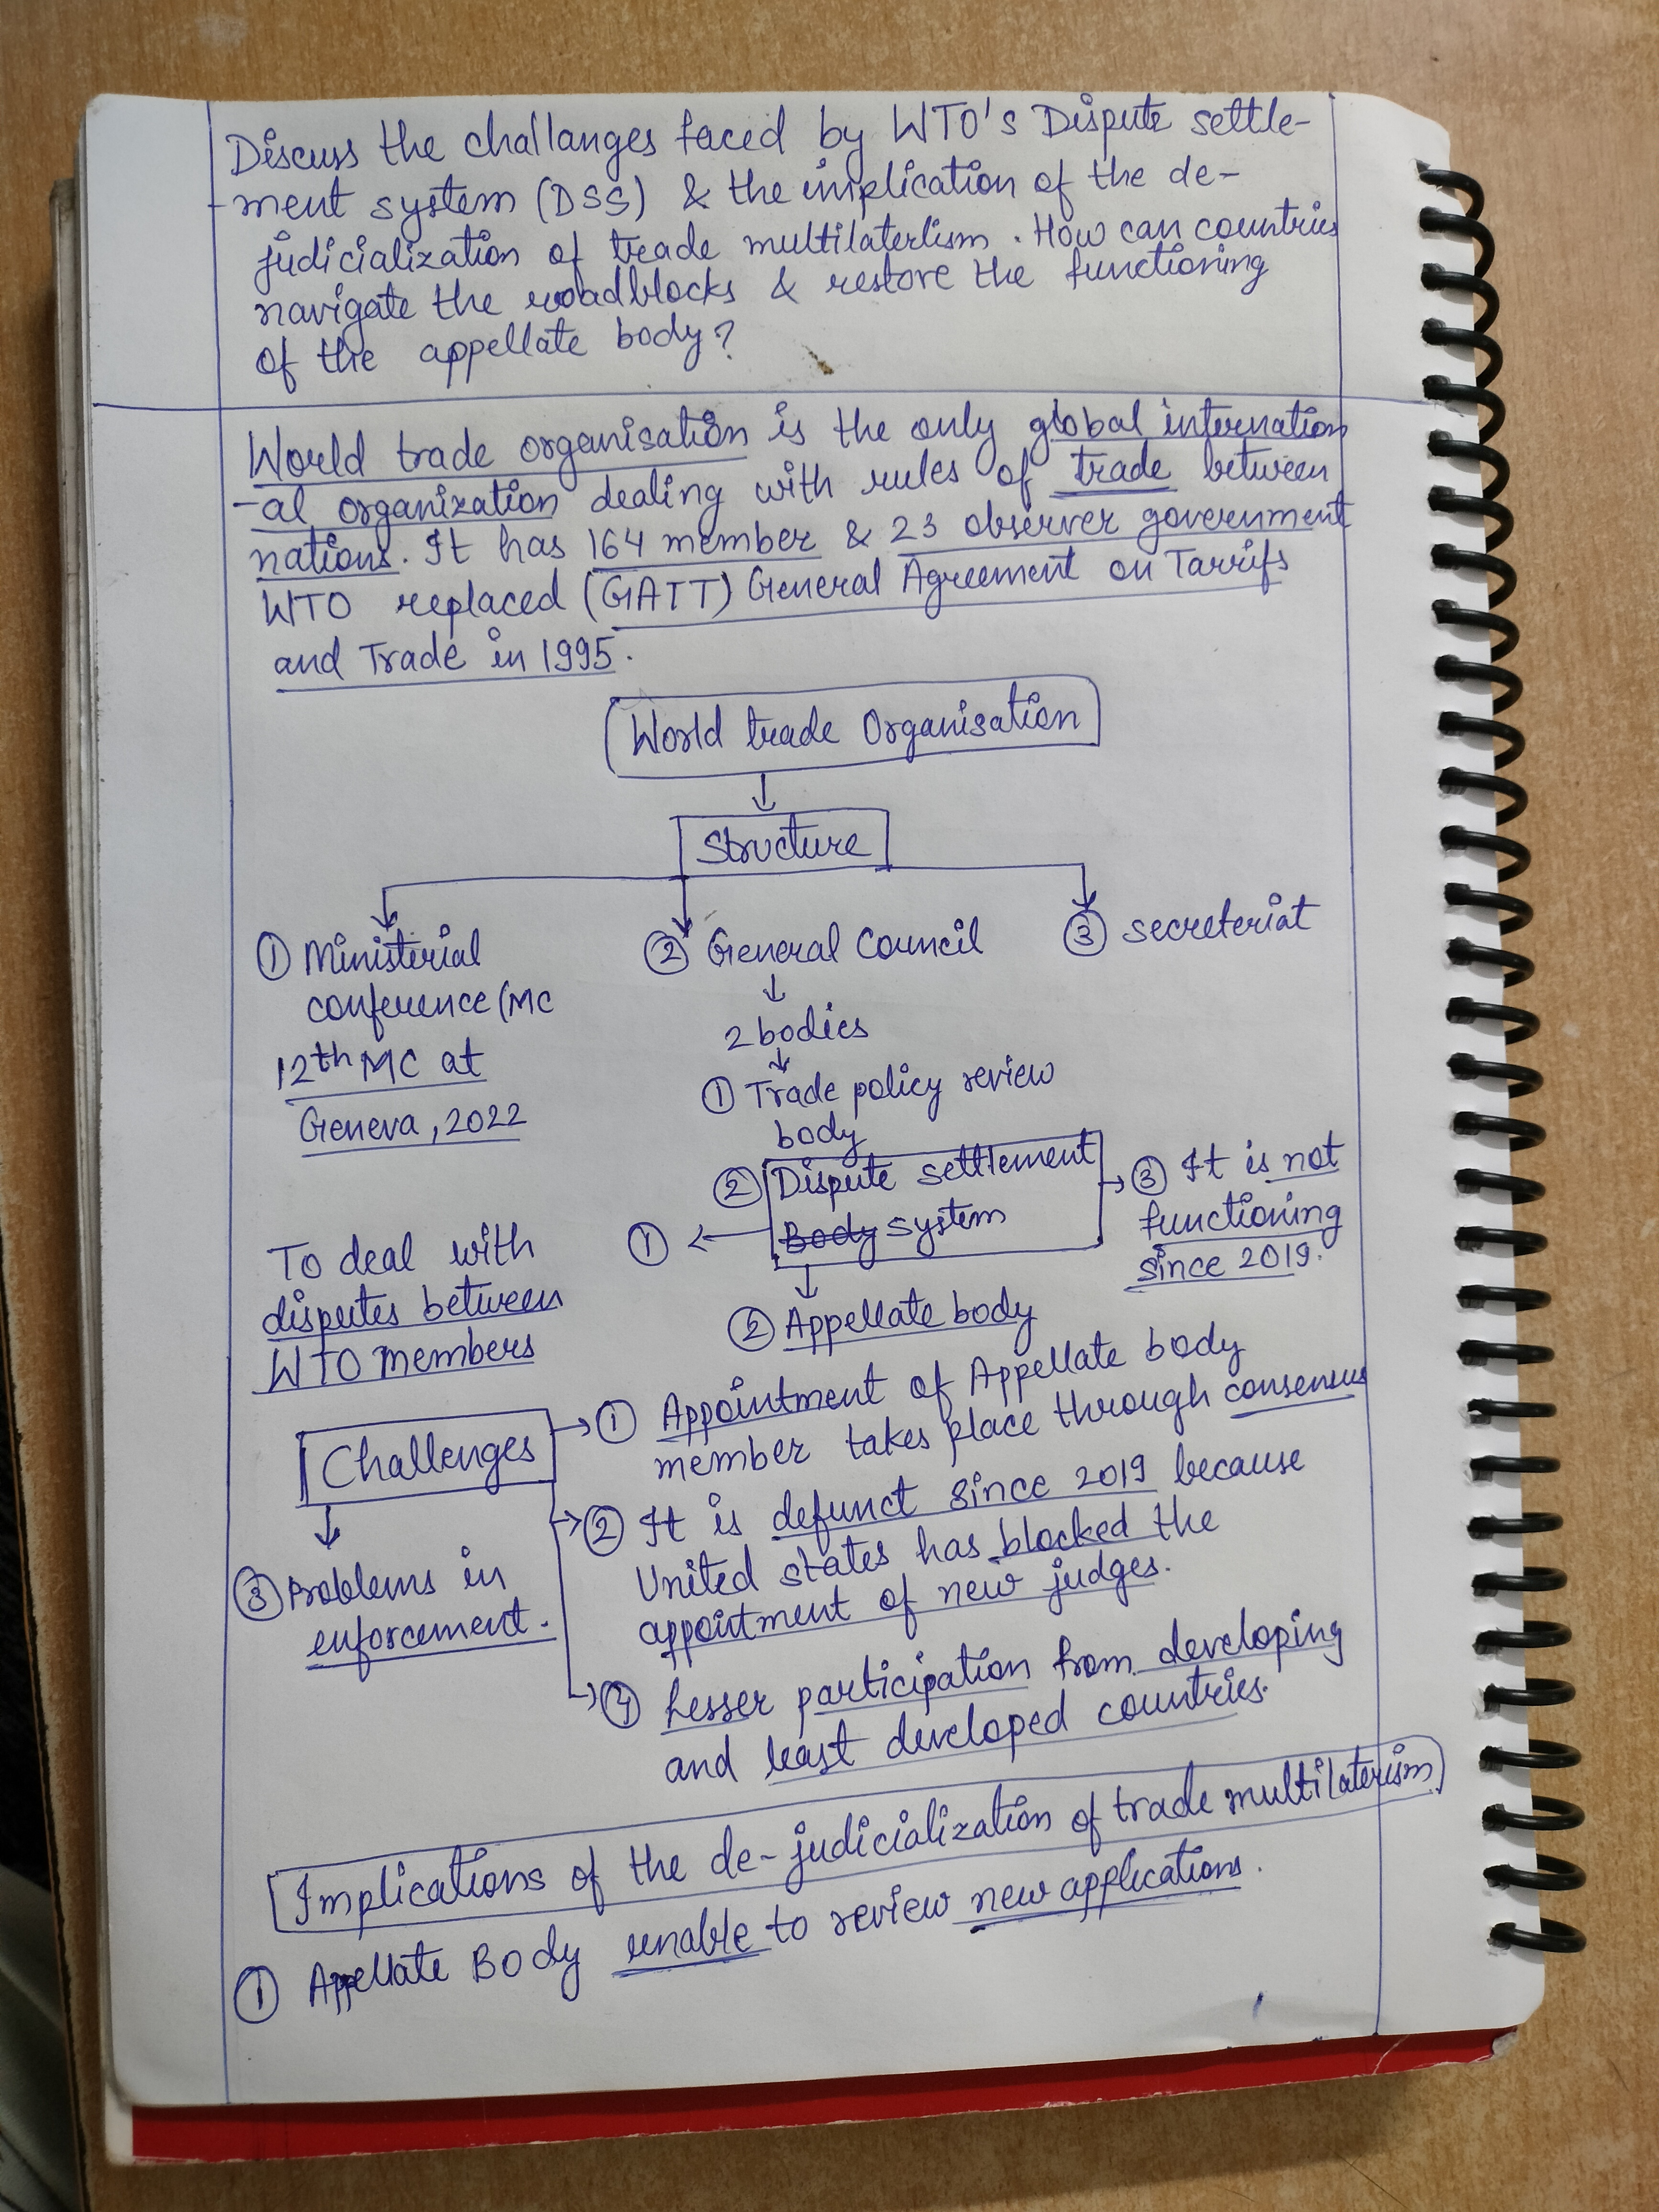 Discuss the challanges faced by WTO's Dispute settle-
-ment system (DSS) & the implication of the de-
judicialization of trade multilaterlism. How can countries
navigate the roadblocks & restore the functioning
of the appellate body?
World trade organisation is the only global internation
-al organization dealing with rules of trade between
nations. It has 164 member & 23 observer government
WTO replaced (GATT) General Agreement on Tarrifs
and Trade in 1995.
World trade Organisation
Structure
① Ministerial
conference (MC
12th MC at
Geneva, 2022
② General Council
2 bodies
① Trade policy review
body
② Dispute settlement
Body system
③ secreteriat
③ It is not
functioning
since 2019.
①
To deal with
disputes between
WTO members
② Appellate body
Challenges
① Appointment of Appellate body
member takes place through consensus
② It is defunct since 2019 because
United states has blocked the
appointment of new judges.
③ Problems in
enforcement.
④ Lesser participation from developing
and least developed countries.
Implications of the de-judicialization of trade multilaterism
① Appellate Body unable to review new applications.